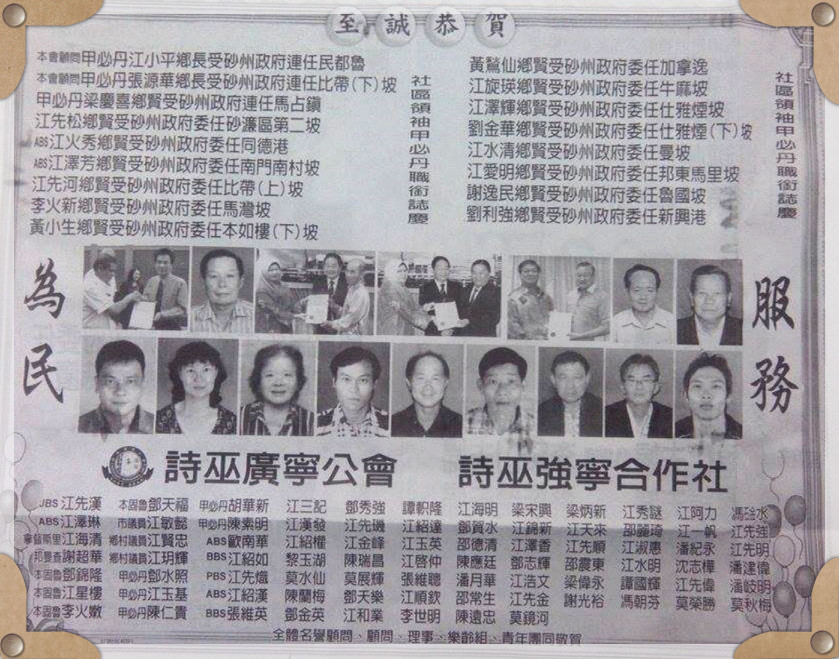 至誠恭賀
本會顧問甲必丹江小平鄉長受砂州政府連任民都魯
本會顧問甲必丹張源華鄉長受砂州政府連任比帶(下)坡
甲必丹梁慶喜鄉賢受砂州政府連任馬占鎮
江先松鄉賢受砂州政府委任砂濂區第二坡
ABS江火秀鄉賢受砂州政府委任同德港
ABS江澤芳鄉賢受砂州政府委任南門南村坡
江先河鄉賢受砂州政府委任比帶(上)坡
李火新鄉賢受砂州政府委任馬灣坡
黃小生鄉賢受砂州政府委任本如樓(下)坡
社區領袖甲必丹職銜誌慶
黃鶩仙鄉賢受砂州政府委任加拿逸
江旋瑛鄉賢受砂州政府委任牛麻坡
江澤輝鄉賢受砂州政府委任仕雅煙坡
劉金華鄉賢受砂州政府委任仕雅煙(下)坡
江水清鄉賢受砂州政府委任曼坡
江愛明鄉賢受砂州政府委任邦東馬里坡
謝逸民鄉賢受砂州政府委任魯國坡
劉利強鄉賢受砂州政府委任新興港
社區領袖甲必丹職銜誌慶
為民
服務
詩巫廣寧公會 詩巫強寧合作社
JBS江先漢 本固魯鄧天福 甲必丹胡華新 江三記 鄧秀強 譚軹隆 江海明 梁宋興 梁炳新 江秀謎 江阿力 馮水
ABS江澤琳 市議員江敏懿 甲必丹陳素明 江漢發 江先璣 江紹達 鄧貿水 江錦新 江天來 邵麗琦 江一帆 江先強
江海清 鄉村議員江賢忠 ABS歐南華 江紹權 江金峰 江玉英 邵德清 江澤香 江先順 江淑惠 潘紀永 江先明
邦曼查謝超華 鄉村議員江玥輝 BBS江紹如 黎玉湖 陳瑞昌 江啓仲 陳應廷 鄧志輝 邵震東 江水明 沈志樺 潘建偉
本固魯鄧錦隆 甲必丹鄧水照 PBS江先熾 莫水仙 莫展輝 張維聰 潘月華 江浩文 梁偉永 譚國輝 江先偉 潘岐明
本固魯江星樓 甲必丹江玉基 ABS江紹漢 陳蘭梅 鄧天樂 江順欽 邵常生 江先金 謝光裕 馮朝芬 莫榮勝 莫秋梅
本固魯李火嫩 甲必丹陳仁貴 BBS張維英 鄧金英 江和業 李世明 陳遠忠 莫鏡河
全體名譽顧問、顧問、理事、樂齡組、青年團同敬賀